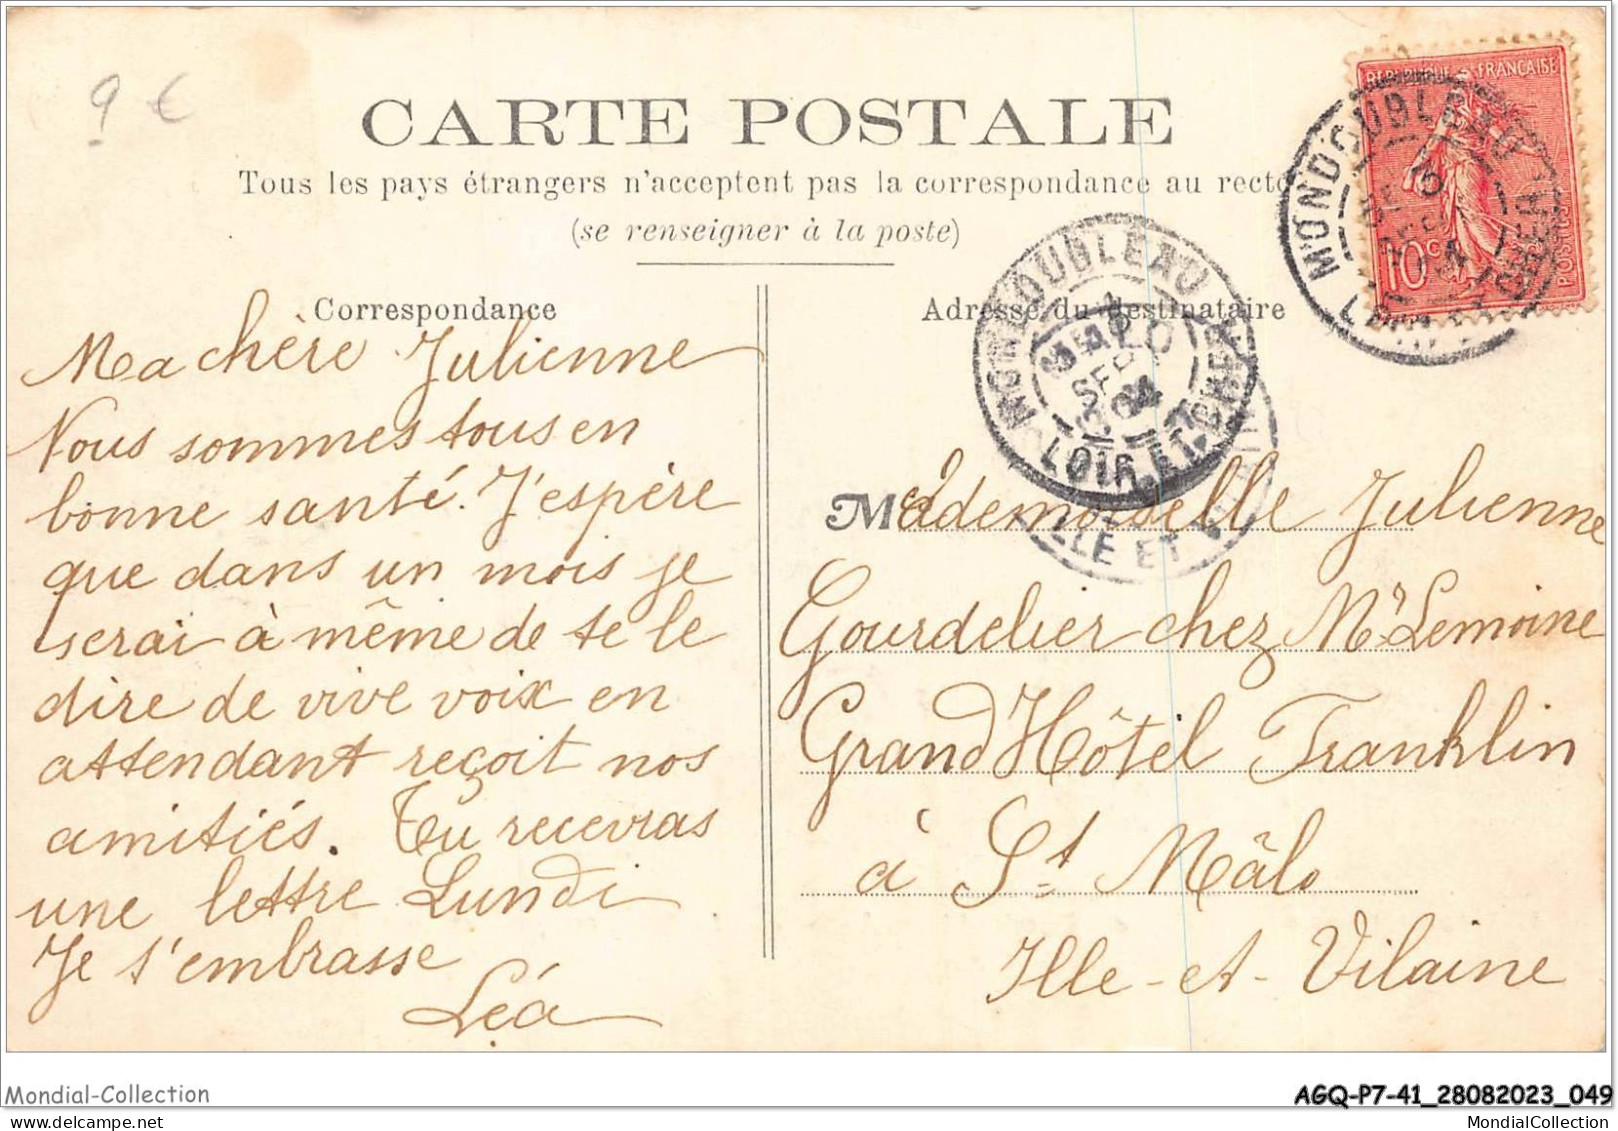 9 €
CARTE POSTALE
Tous les pays étrangers n'acceptent pas la correspondance au recto
(se renseigner à la poste)
Correspondance
Ma chère Julienne
Nous sommes tous en
bonne santé. J'espère
que dans un mois je
serai à même de te le
dire de vive voix en
attendant reçoit nos
amitiés. Tu recevras
une lettre Lundi
Je t'embrasse
Léa
Adresse du destinataire
Mademoiselle Julienne
Gourdelier chez Mr Lemoine
Grand Hôtel Franklin
à St Mâlo
Ille-et-Vilaine
REPUBLIQUE FRANÇAISE
10c
POSTES
MONDOUBLEAU
MONDOUBLEAU
SEPT
04
LOIR-ET-CHER
ILLE ET
Mondial-Collection
AGQ-P7-41_28082023_049
MondialCollection.com